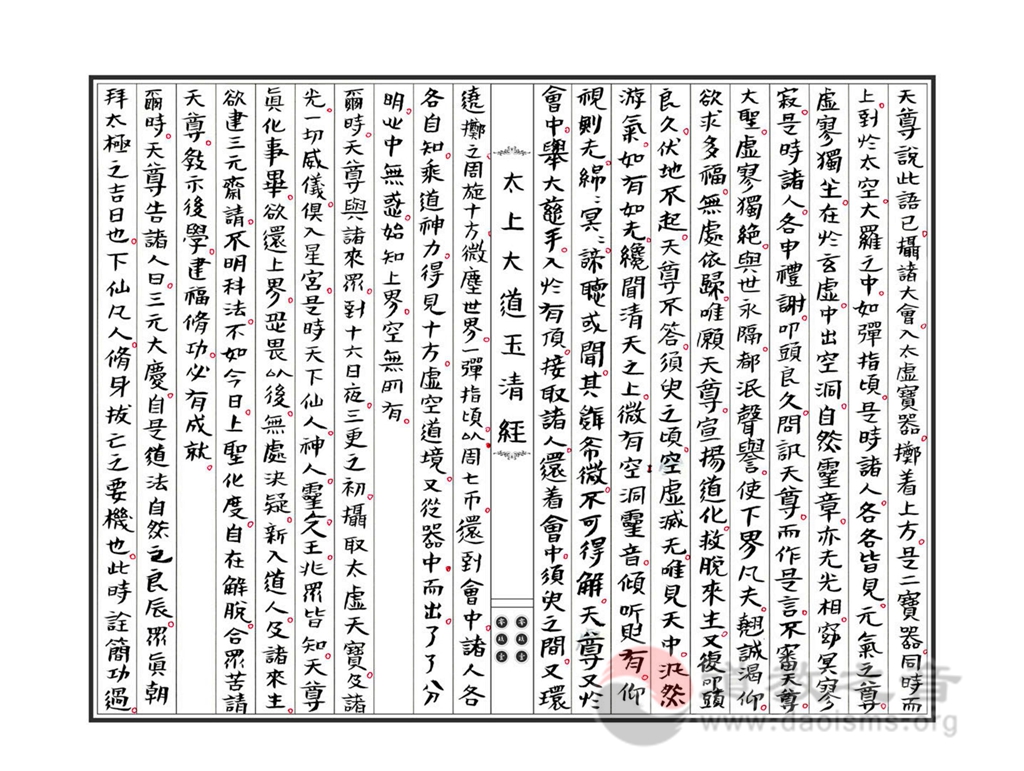 天尊說此語已攝諸大會入太虛寶器擲着上方是二寶器同時而
上到於太空大羅之中如彈指頃是時諸人各各皆見元氣之尊
虛寥獨坐在於玄虛中出空洞自然靈章亦无光相窈冥寥
寂是時諸人各申禮謝叩頭良久問訊天尊而作是言不審天尊
大聖虛寥獨絕與世永隔都泯聲譽使下界凡夫翹誠渴仰
欲求多福無處依歸唯願天尊宣揚道化救脫來生又復叩頭
良久伏地不起天尊不答須臾之頃空虛滅无唯見天中汎然
游氣如有如无纔聞清天之上微有空洞靈音傾听則有仰
視則无綿綿冥冥諦聽或聞其辭希微不可得解天尊又於
會中舉大慈手入於有頂接取諸人還着會中須臾之間又環
太上大道玉清經
遶擲之周旋十方微塵世界一彈指頃以周七帀還到會中諸人各
各自知乘道神力得見十方虛空道境又從器中而出了了分
明心中無惑始知上界空無所有
爾時天尊與諸來眾到十六日夜三更之初攝取太虛天寶及諸
光一切威儀俱入星宮是時天下仙人神人靈文王兆眾皆知天尊
眞化事畢欲還上界恐畏以後無處決疑新入道人及諸來生
欲建三元齋請不明科法不如今日上聖化度自在解脫合眾苦請
天尊敎示後學建福脩功必有成就
爾時天尊告諸人曰三元大慶自是道法自然之良辰眾眞朝
拜太極之吉日也下仙凡人脩身拔亡之要機也此時詮簡功過
道教之音
www.daoisms.org